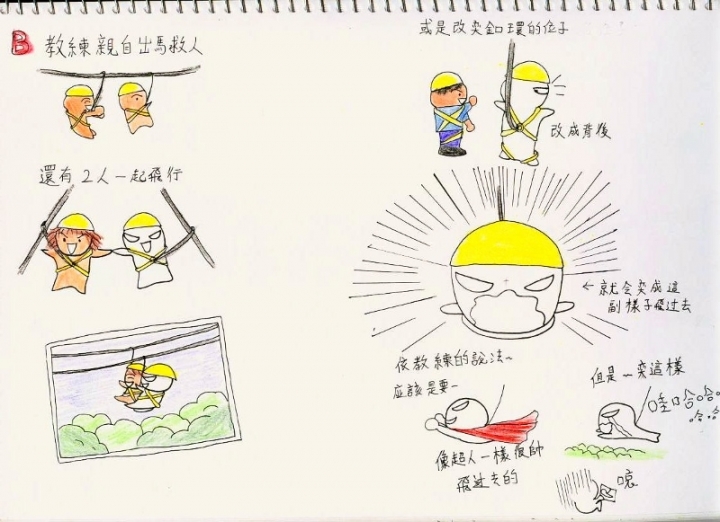 B 教練親自出馬救人
還有2人一起飛行
或是改变釦環的位子
改成背後
← 就会变成這
副樣子飛过去
依教練的說法~
应該是要~
像超人一樣很帥
飛过去的
但是~变這樣
哇哈哈哈
哈哈
唉